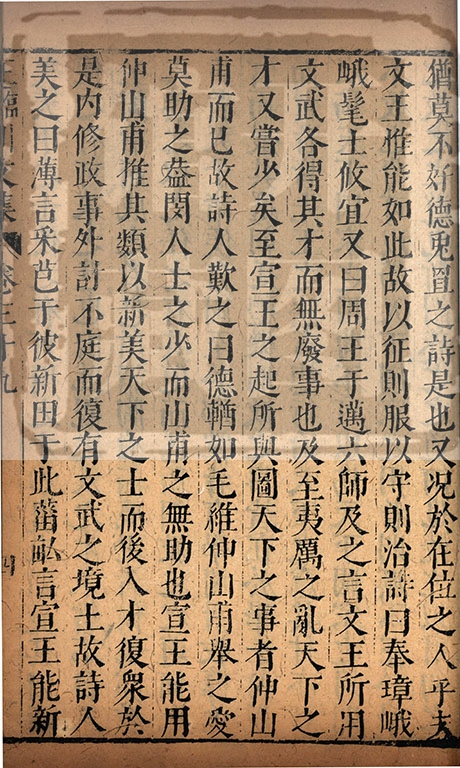 猶莫不好德兎罝之詩是也又况於在位之人乎夫
文王惟能如此故以征則服以守則治詩曰奉璋峨
峨髦士攸宜又曰周王于邁六師及之言文王所用
文武各得其才而無廢事也及至夷厲之亂天下之
才又嘗少矣至宣王之起所與圖天下之事者仲山
甫而已故詩人歎之曰德輶如毛維仲山甫舉之愛
莫助之葢閔人士之少而山甫之無助也宣王能用
仲山甫推其類以新美天下之士而後人才復衆於
是內修政事外討不庭而復有文武之境土故詩人
美之曰薄言采芑于彼新田于此菑畝言宣王能新
王臨川文集 卷三十九 四